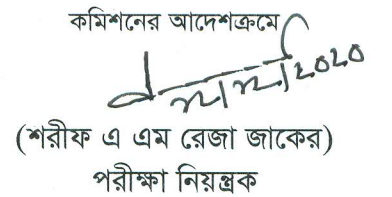 কমিশনের আদেশক্রমে
(শরীফ এ এম রেজা জাকের)
পরীক্ষা নিয়ন্ত্রক